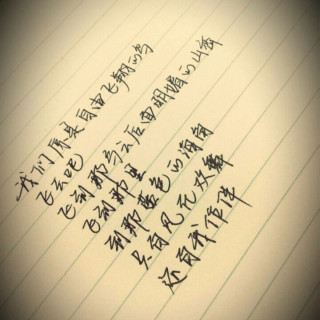 我们原是自由飞翔的鸟
飞去吧
飞到那乌云后面明媚的山峦
飞到那里
到那蓝色的海角
只有风在欢舞
还有我作伴